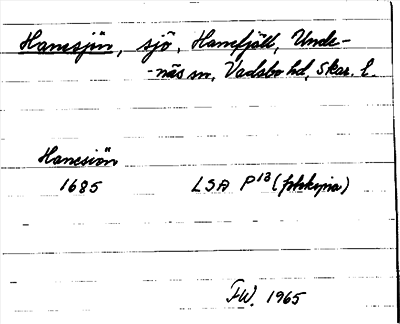 Hanesjön, sjö, Hanefjäll, Unde-
-näs sn, Vadsbo hd, Skar. l.
Hanesiön
1685 LSA P13 (phkyria)
FW. 1965